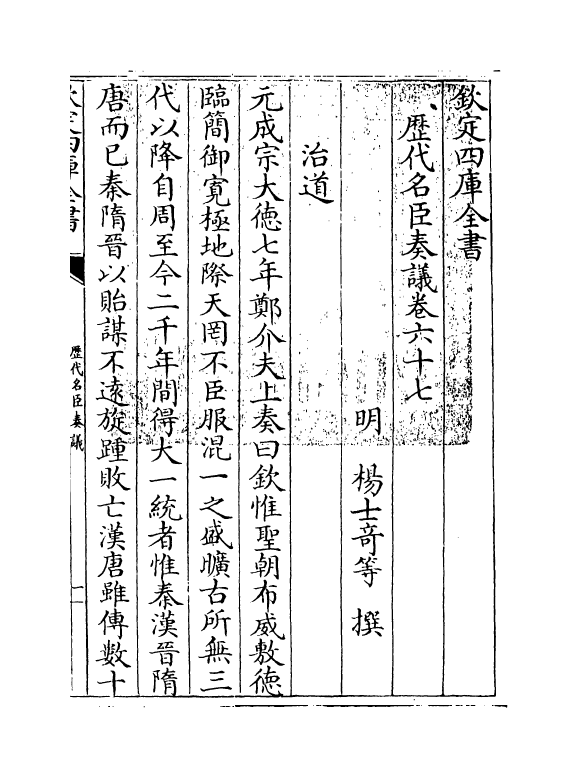 欽定四庫全書
歴代名臣奏議卷六十七
明 楊士竒等 撰
治道
元成宗大徳七年鄭介夫上奏曰欽惟聖朝布威敷徳
臨簡御寛極地際天罔不臣服混一之盛曠古所無三
代以降自周至今二千年間得大一統者惟秦漢晉隋
唐而已秦隋晉以貽謀不逺旋踵敗亡漢唐雖傳數十
欽定四庫全書
歴代名臣奏議
一